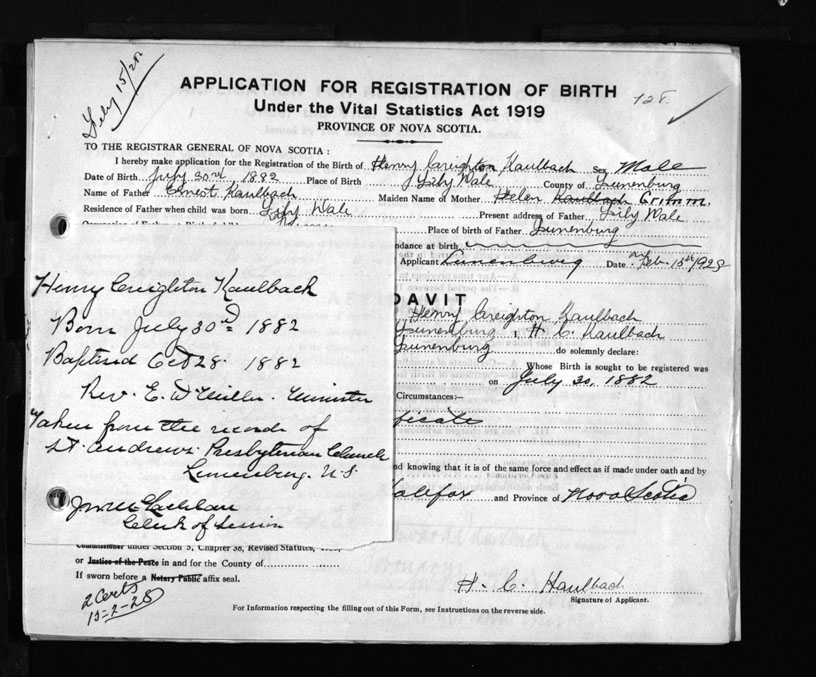 Feby 15/28
128.
APPLICATION FOR REGISTRATION OF BIRTH
Under the Vital Statistics Act 1919
PROVINCE OF NOVA SCOTIA.
TO THE REGISTRAR GENERAL OF NOVA SCOTIA :
I hereby make application for the Registration of the Birth of Henry Creighton Kaulbach Sex Male
Date of Birth July 30th 1882 Place of Birth Lily Vale County of Lunenburg
Name of Father Ernest Kaulbach Maiden Name of Mother Helen Kaulbach
Residence of Father when child was born Lily Vale Present address of Father Lily Vale
Place of birth of Father Lunenburg
ndance at birth
Applicant Lunenburg Date Feb. 15th 1928
DAVIT
Henry Creighton Kaulbach
Lunenburg , H C. Kaulbach
Lunenburg do solemnly declare:
Whose Birth is sought to be registered was
on July 30, 1882
Circumstances:—
ficate
nd knowing that it is of the same force and effect as if made under oath and by
Halifax and Province of Nova Scotia
Henry Creighton Kaulbach
Born July 30th 1882
Baptised Oct 28 1882
Rev. E. D Miller. Minister
Taken from the records of
St. Andrews Presbyterian Church
Lunenburg. N.S.
Clerk of Session
Commissioner under Section 5, Chapter 38, Revised Statutes,
or Justice of the Peace in and for the County of
If sworn before a Notary Public affix seal.
2 Certs
15-2-28
H. C. Kaulbach
Signature of Applicant.
For Information respecting the filling out of this Form, see Instructions on the reverse side.